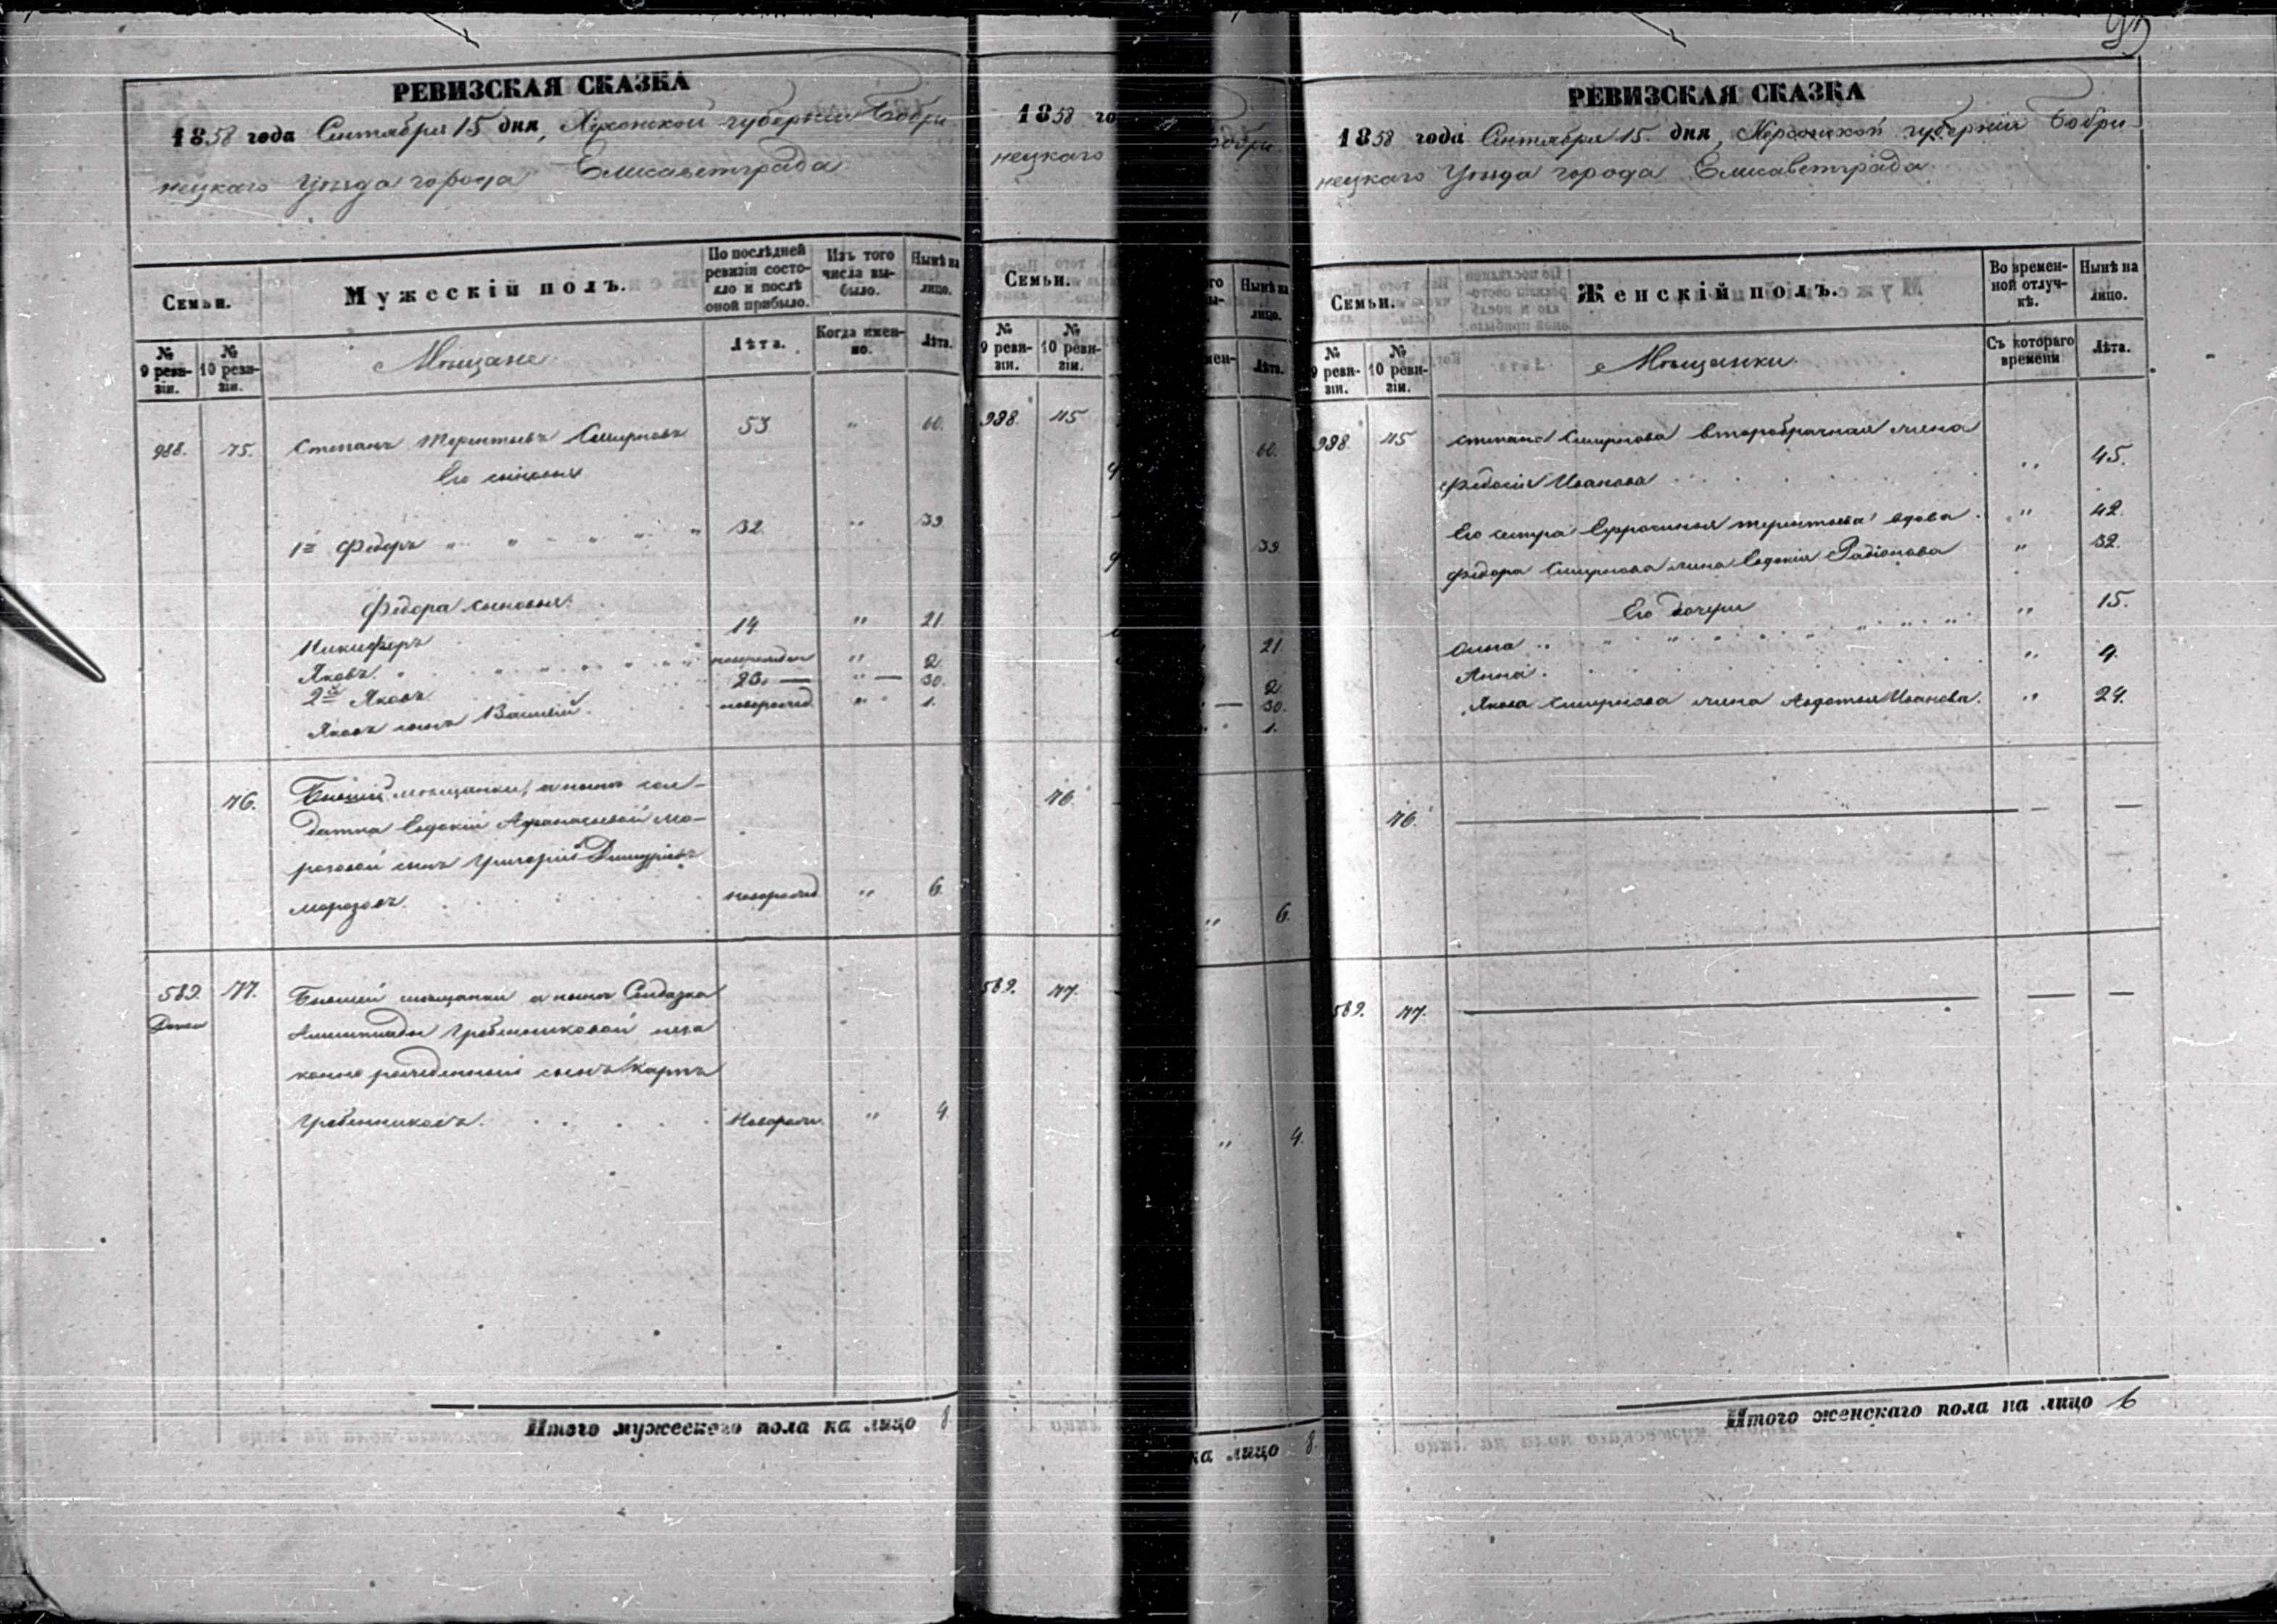 РЕВИЗСКАЯ СКАЗКА
1858 года Сентября 15 дня, Херсонской губерніи Бобри
нецкаго Уѣзда города Елисаветграда
Семьи.
Мужескій полъ.
По послѣдней ревизіи состояло и послѣ оной прибыло.
Изъ того числа выбыло.
Нынѣ на лицо.
№ 9 ревизіи.
№ 10 ревизіи.
Мѣщане
Лѣта.
Когда именно.
Лѣта.
988. 75. Степанъ Терентьевъ Смирновъ 53 " 60.
Его сыновья
1й Федоръ " " " " " " 32 " 39.
Федора сыновья.
Никифоръ 14 " 21
Яковъ. " " " " " " " 2.
2й Яковъ 23. — " — 30.
Яковъ сынъ Василій новорожд. " 1.
76. Бывшей мѣщанки, а нынѣ сол-
датка Евдокіи Афанасьевой Мо-
розовой сынъ Григорій
Морозовъ. новорожд. " 6.
589. 77. Бывшей мѣщанки а нынѣ
Гребенниковой неза
конно рожденный сынъ Карпъ
Гребенниковъ. Новорож. " 4.
Итого мужескаго пола на лицо 8.
1858 го
нецкаго
Семьи.
№ 9 ревизіи.
№ 10 ревизіи.
988. 75
76.
589. 77.
Бобри
Нынѣ на лицо.
Лѣта.
60.
39
21
2.
— 30.
" 1.
" 6.
" 4.
ка лицо 8.
РЕВИЗСКАЯ СКАЗКА
1858 года Сентября 15 дня, Херсонской губерніи Бобри
нецкаго Уѣзда города Елисаветграда
Семьи.
Женскій полъ.
Во временной отлучкѣ.
Нынѣ на лицо.
№ 9 ревизіи.
№ 10 ревизіи.
Мѣщанки
Съ котораго времени
Лѣта.
988. 75 Степана Смирнова второбрачная жена
Федосія Иванова " 45.
Его сестра Ефросинья Терентьева вдова " 42.
Федора Смирнова жена Евдокія Радіонова " 32.
Его дочери
" 15.
Анна. " 9.
Якова Смирнова жена Авдотья Иванова. " 24.
76. — — —
589. 77. — — —
Итого женскаго пола на лицо 6